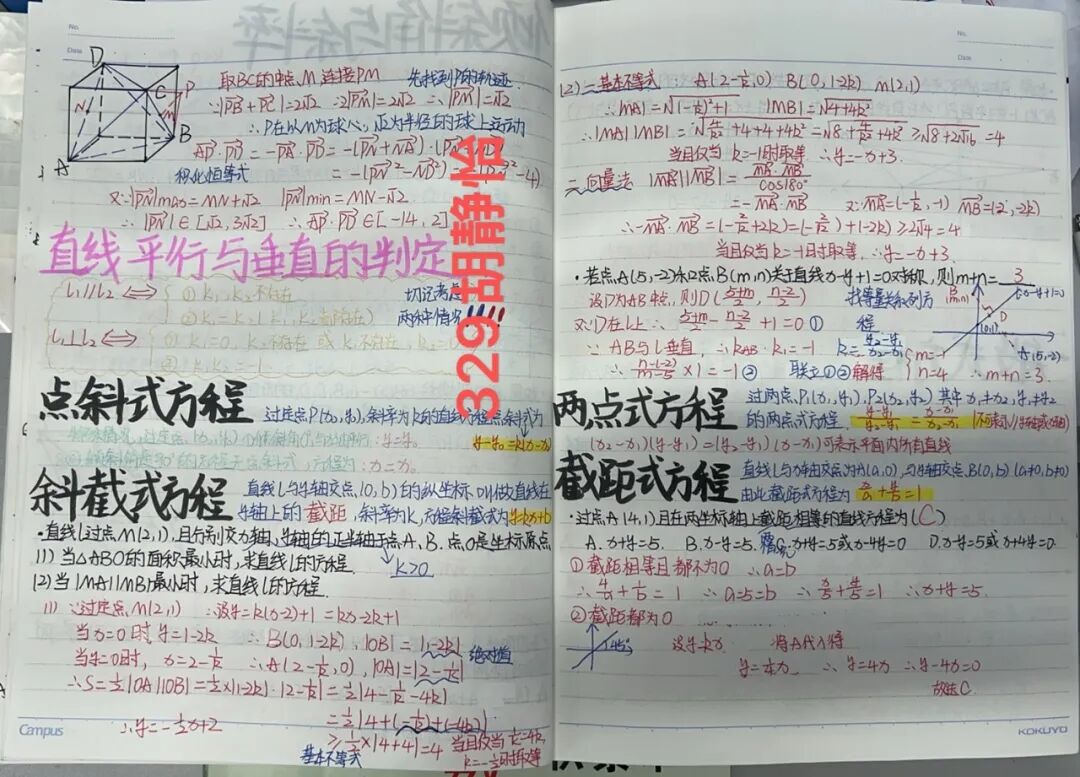 No.
Date
D
C
P
N
M
A
B
取BC的中点M 连接PM 先找到P的轨迹
∵|PB+PC|=2√2 ∴2|PM|=2√2 ∴|PM|=√2
∴P在以M为球心,√2为半径的球上运动
AP·PD=-PA·PD=-(PN+NA)·(PN+ND)
极化恒等式 =-(PN²-ND²)
又∵|PN|max=MN+√2 |PN|min=MN-√2
∴|PN|∈[√2,3√2] ∴AP·PD∈[-14,2]
直线平行与垂直的判定
l₁∥l₂⟺
① k₁,k₂不存在
② k₁=k₂(k₁,k₂都存在)
切记考虑
两种情况!!!
l₁⊥l₂⟺
① k₁=0,k₂不存在 或 k₁不存在,k₂=0
② k₁·k₂=-1
329胡静怡
点斜式方程
过定点P(x₀,y₀),斜率为k的直线方程点斜式为
y-y₀=k(x-x₀)
斜截式方程
直线l与y轴交点(0,b)的纵坐标b叫做直线在
y轴上的截距,斜率为k,方程斜截式为y=kx+b
·直线l过点M(2,1),且分别交x轴,y轴的正半轴于点A、B.点O是坐标原点
(1)当△ABO的面积最小时,求直线l的方程 k<0
(2)当|MA||MB|最小时,求直线l的方程
(1)∵过定点M(2,1) ∴设y=k(x-2)+1=kx-2k+1
当x=0时 y=1-2k ∴B(0,1-2k) |OB|=|1-2k|
当y=0时,x=2-1/k ∴A(2-1/k,0),|OA|=|2-1/k| 绝对值
∴S=½|OA||OB|=½×|1-2k|·|2-1/k|=½|4-1/k-4k|
=½|4+(-1/k)+(-4k)|
∴y=-½x+2
≥½×|4+4|=4 当且仅当1/k=4k,
基本不等式 k=-½时取等
Campus
No.
Date
(2)一基本不等式 A(2-1/k,0) B(0,1-2k) M(2,1)
∴|MA|=√(-1/k)²+1 |MB|=√4+4k²
∴|MA||MB|=√4/k²+4+4+4k²=√8+4/k²+4k²≥√8+2√16=4
当且仅当k=-1时取等 ∴y=-x+3.
二向量法 |MA||MB|=MA·MB/cos180°
=-MA·MB 又∵MA=(-1/k,-1) MB=(-2,-2k)
∴-MA·MB=(-2/k+2k)=(-2/k)+(-2k)≥2√4=4
当且仅当k=-1时取等 ∴y=-x+3.
·若点A(5,-2)和点B(m,n)关于直线x-y+1=0对称,则m+n=3
设D为AB中点,则D(5+m/2,n-2/2) 找等量关系列方
又∵D在l上 ∴5+m/2-n-2/2+1=0① 程
∵AB与l垂直,∴kAB·k₁=-1 k=y₂-y₁/x₂-x₁
∴n-(-2)/m-5×1=-1② 联立①②解得{m=-1 n=4 ∴m+n=3.
B(m,n)
(x-y+1=0)
D
(0,1)
A(5,-2)
两点式方程
过两点P₁(x₁,y₁),P₂(x₂,y₂)其中x₁≠x₂,y₁≠y₂
的两点式方程 y-y₁/y₂-y₁=x-x₁/x₂-x₁
(x₂-x₁)(y-y₁)=(y₂-y₁)(x-x₁)可表示平面内所有直线
截距式方程
直线l与x轴交点为A(a,0),与y轴交点,B(0,b)(a≠0,b≠0)
由此截距式方程为x/a+y/b=1
·过点A(4,1)且在两坐标轴上截距相等的直线方程为(C)
A.x+y=5. B.x-y=5. C.x+y=5或x-4y=0 D.x-y=5或x+4y=0
①截距相等且都不为0 ∴a=b
∴4/a+1/b=1 ∴a=5=b ∴x/5+y/5=1 ∴x+y=5.
②截距都为0
设y=kx 将A代入得
y=¼x ∴x=4y ∴y-4x=0
故选C.
KOKUYO